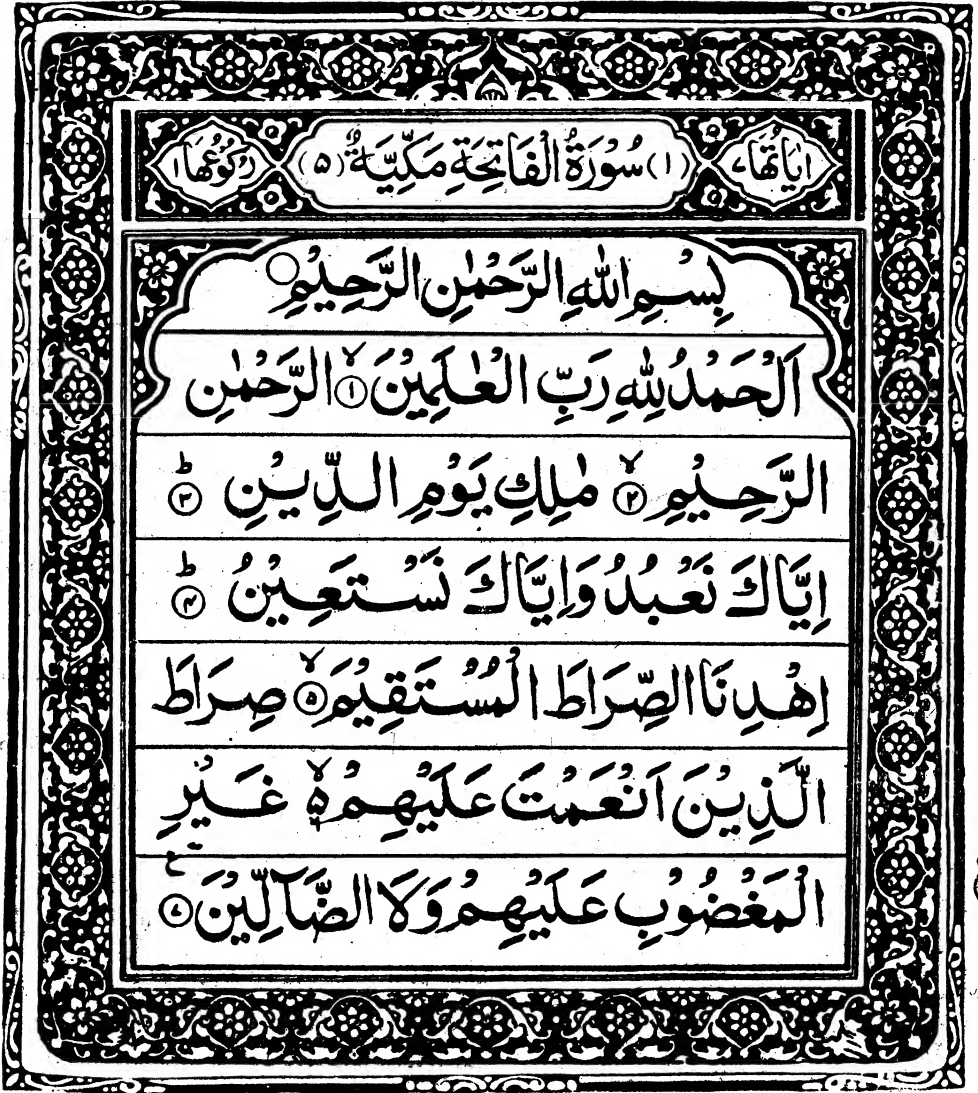 اٰيَاتُهَا ٧ (١) سُوْرَةُ الْفَاتِحَةِ مَكِّيَّةٌ (٥) رُكُوْعُهَا ١
بِسْمِ اللّٰهِ الرَّحْمٰنِ الرَّحِيْمِ ○
اَلْحَمْدُ لِلّٰهِ رَبِّ الْعٰلَمِيْنَ ۙ﴿١﴾ الرَّحْمٰنِ
الرَّحِيْمِ ۙ﴿٢﴾ مٰلِكِ يَوْمِ الدِّيْنِ ؕ﴿٣﴾
اِيَّاكَ نَعْبُدُ وَاِيَّاكَ نَسْتَعِيْنُ ؕ﴿۴﴾
اِهْدِنَا الصِّرَاطَ الْمُسْتَقِيْمَ ۙ﴿۵﴾ صِرَاطَ
الَّذِيْنَ اَنْعَمْتَ عَلَيْهِمْ ۙ۬ۦ غَيْرِ
الْمَغْضُوْبِ عَلَيْهِمْ وَلَا الضَّآلِّيْنَ ﴿٧﴾ ع